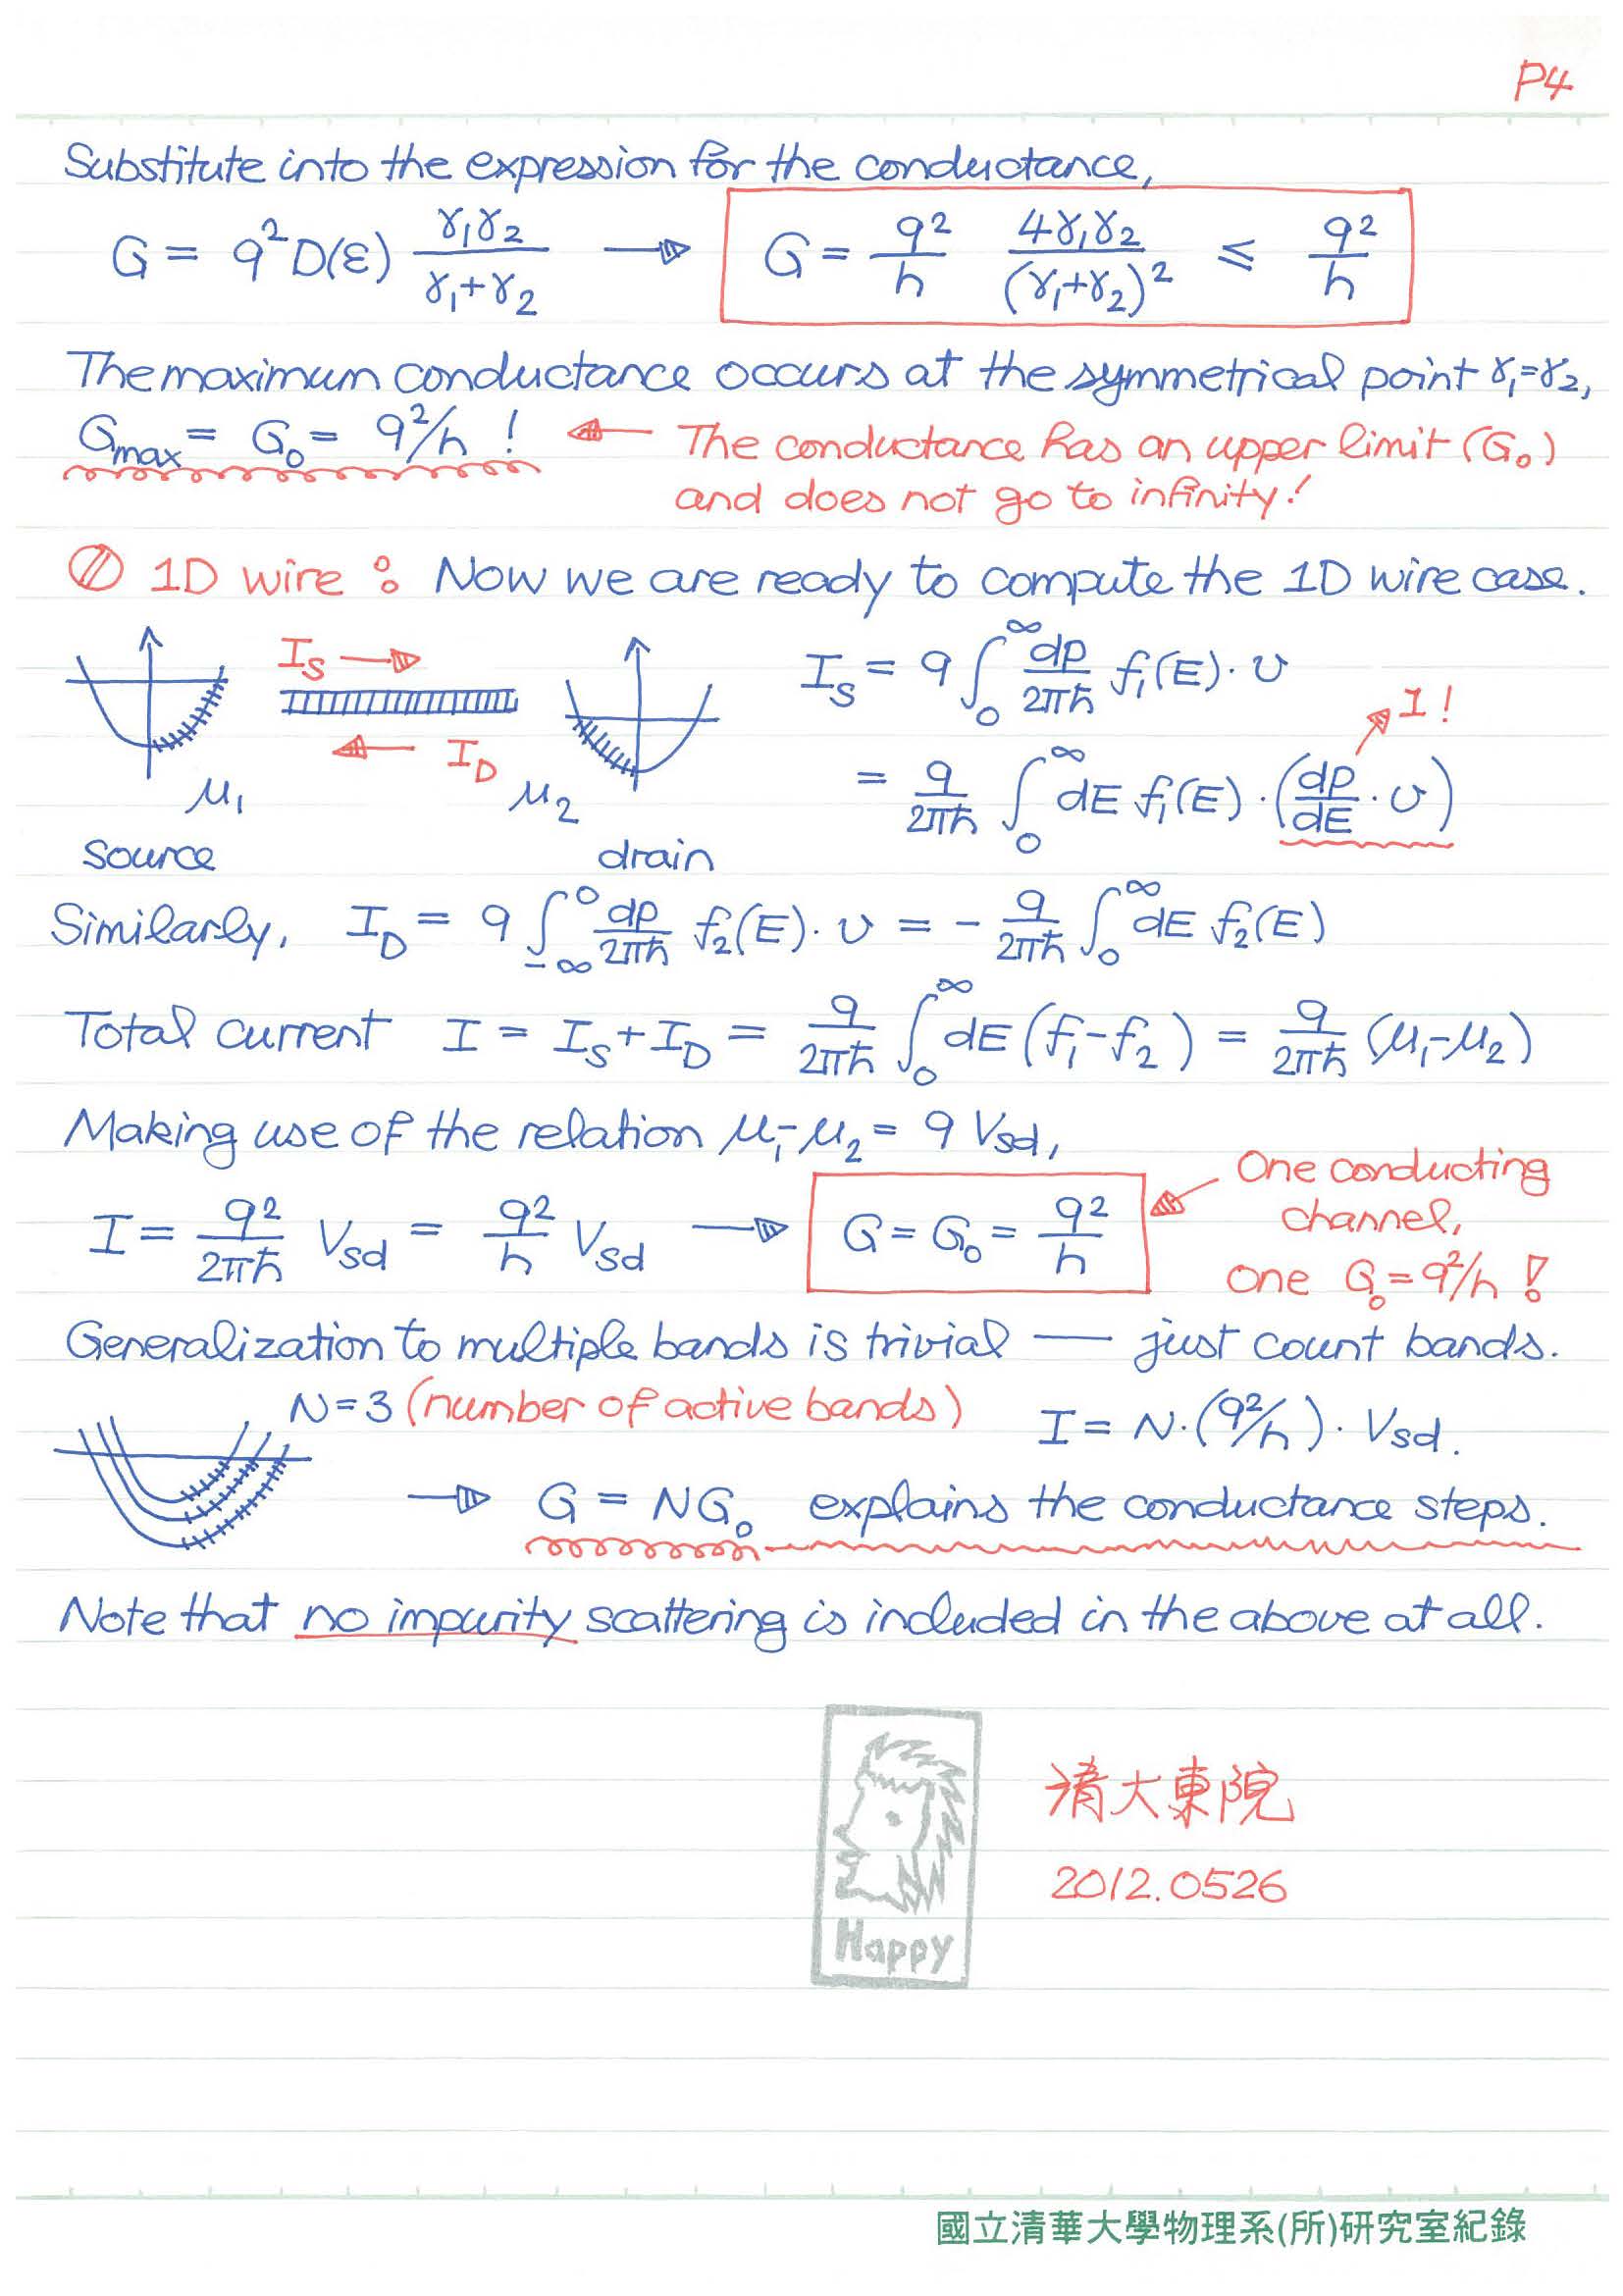 P4
Substitute into the expression for the conductance,
G = q² D(ε) γ₁γ₂/(γ₁+γ₂) → G = q²/h 4γ₁γ₂/(γ₁+γ₂)² ≤ q²/h
The maximum conductance occurs at the symmetrical point γ₁=γ₂,
Gmax = G₀ = q²/h ! ← The conductance has an upper limit (G₀)
and does not go to infinity!
1D wire : Now we are ready to compute the 1D wire case.
I_S → I_S = q ∫₀^∞ dp/2πℏ f₁(E)· v
← I_D
μ₁ μ₂ = q/2πℏ ∫₀^∞ dE f₁(E) · (dp/dE · v) 1!
source drain
Similarly, I_D = q ∫_{-∞}^0 dp/2πℏ f₂(E)· v = - q/2πℏ ∫₀^∞ dE f₂(E)
Total current I = I_S + I_D = q/2πℏ ∫₀^∞ dE (f₁-f₂) = q/2πℏ (μ₁-μ₂)
Making use of the relation μ₁-μ₂ = q Vsd,
I = q²/2πℏ Vsd = q²/h Vsd → G = G₀ = q²/h
One conducting
channel,
one G₀ = q²/h !
Generalization to multiple bands is trivial — just count bands.
N=3 (number of active bands) I = N·(q²/h)· Vsd.
→ G = NG₀ explains the conductance steps.
Note that no impurity scattering is included in the above at all.
Happy
清大東院
2012.0526
國立清華大學物理系(所)研究室紀錄